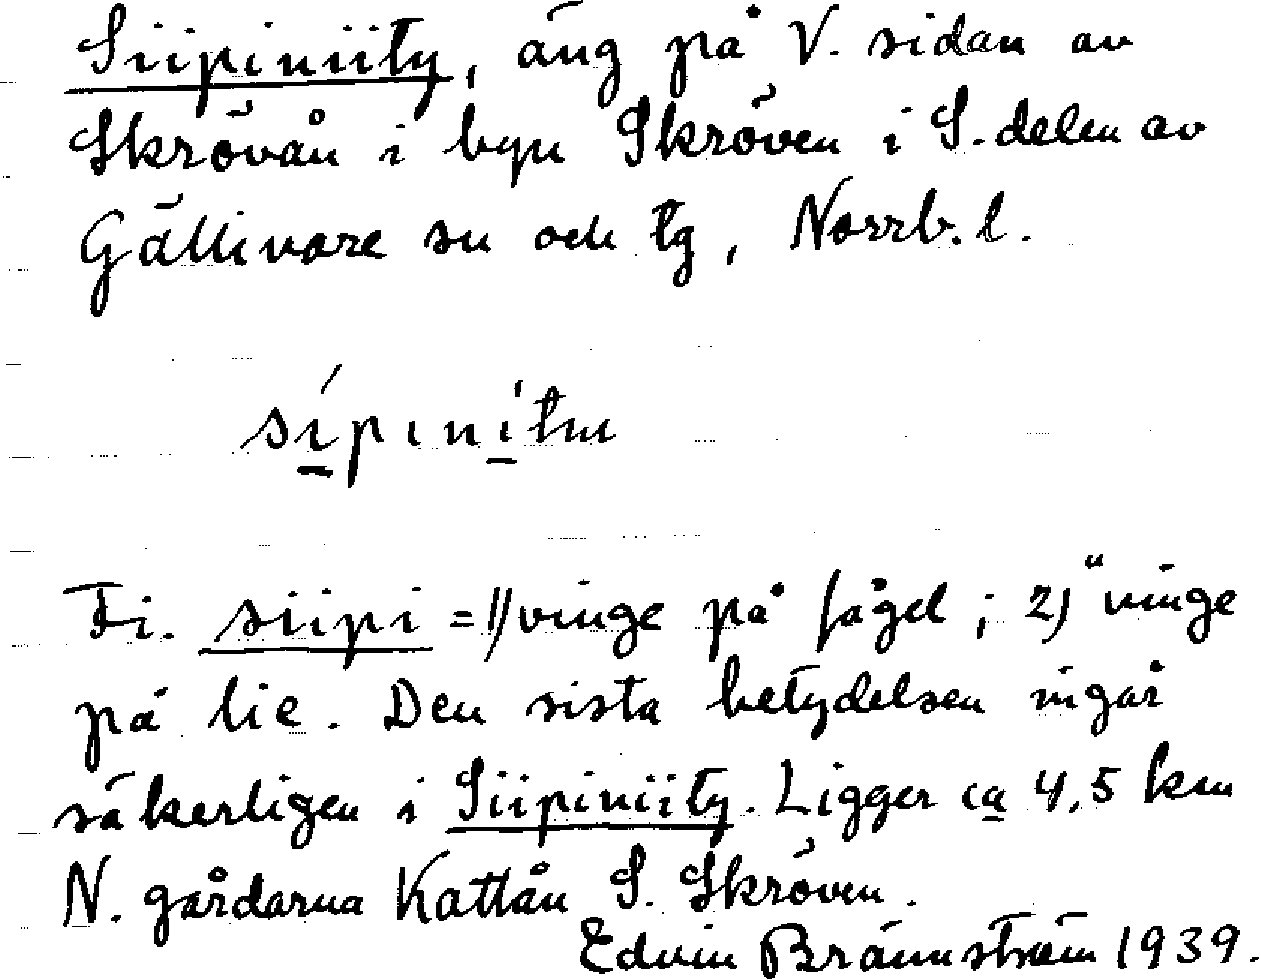 Siipiniity, äng på V. sidan av
Skrövån i byn Skröven i S. delen av
Gällivare sn och tg, Norrb. l.
Fi. siipi = 1) vinge på fågel ; 2) "vinge
på lie. Den sista betydelsen ingår
säkerligen i Siipiniity. Ligger ca 4,5 km
N. gårdarna Kattån S. Skröven.
Edvin Brännström 1939.